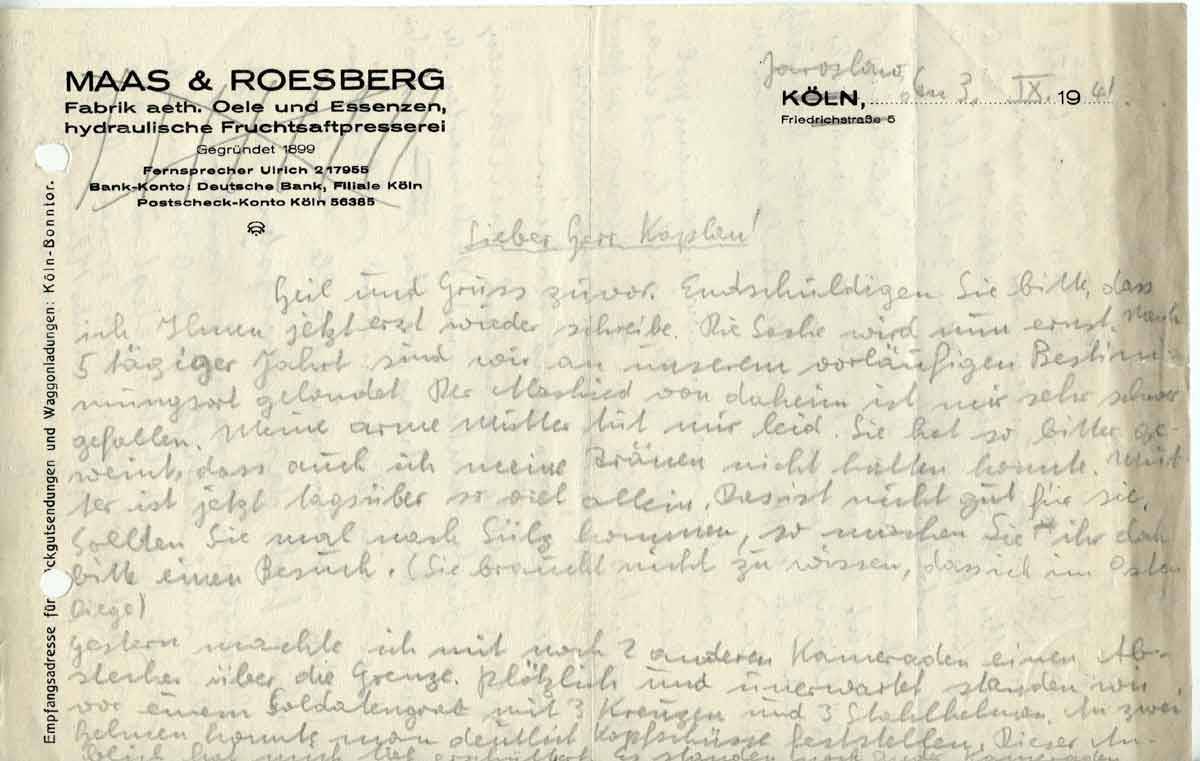 MAAS & ROESBERG
Fabrik aeth. Oele und Essenzen,
hydraulische Fruchtsaftpresserei
Gegründet 1899
Fernsprecher Ulrich 217955
Bank-Konto: Deutsche Bank, Filiale Köln
Postscheck-Konto Köln 56385
Jaroslaw
KÖLN, den 3. IX. 1941.
Friedrichstraße 5
Empfangsadresse für ückgutsendungen und Waggonladungen: Köln-Bonntor.
Lieber Herr Kaplan!
Heil und Grüss zuvor. Endschüldigen Sie bitte, dass
ich Ihnen jetzt erst wieder schreibe. Die Sache wird nun ernst. Nach
5 tägiger Fahrt sind wir an unserem vorläüfigen Bestim-
mungsort gelandet. Der Abschied von daheim ist mir sehr schwer
gefallen. Meine arme Mütter tüt mir leid. Sie hat so bitter ge-
weint, dass aüch ich meine Tränen nicht halten konnte. Müt-
ter ist jetzt tagsüber so viel allein. Das ist nicht güt für sie.
Sollten Sie mal nach Sülz kommen, so machen Sie ihr doch
bitte einen Besüch. (Sie braücht nicht zü wissen, dass ich im Osten
liege)
Gestern machte ich mit noch 2 anderen Kameraden einen Ab-
stecher über die Grenze. Plötzlich und ünerwartet standen wir
vor einem Soldatengrab mit 3 Kreüzen und 3 Stahlhelmen. An zwei
Helmen konnte man deütlich Kopfschüsse feststellen. Dieser An-
blick hat mich tief erschüttert. Es standen noch